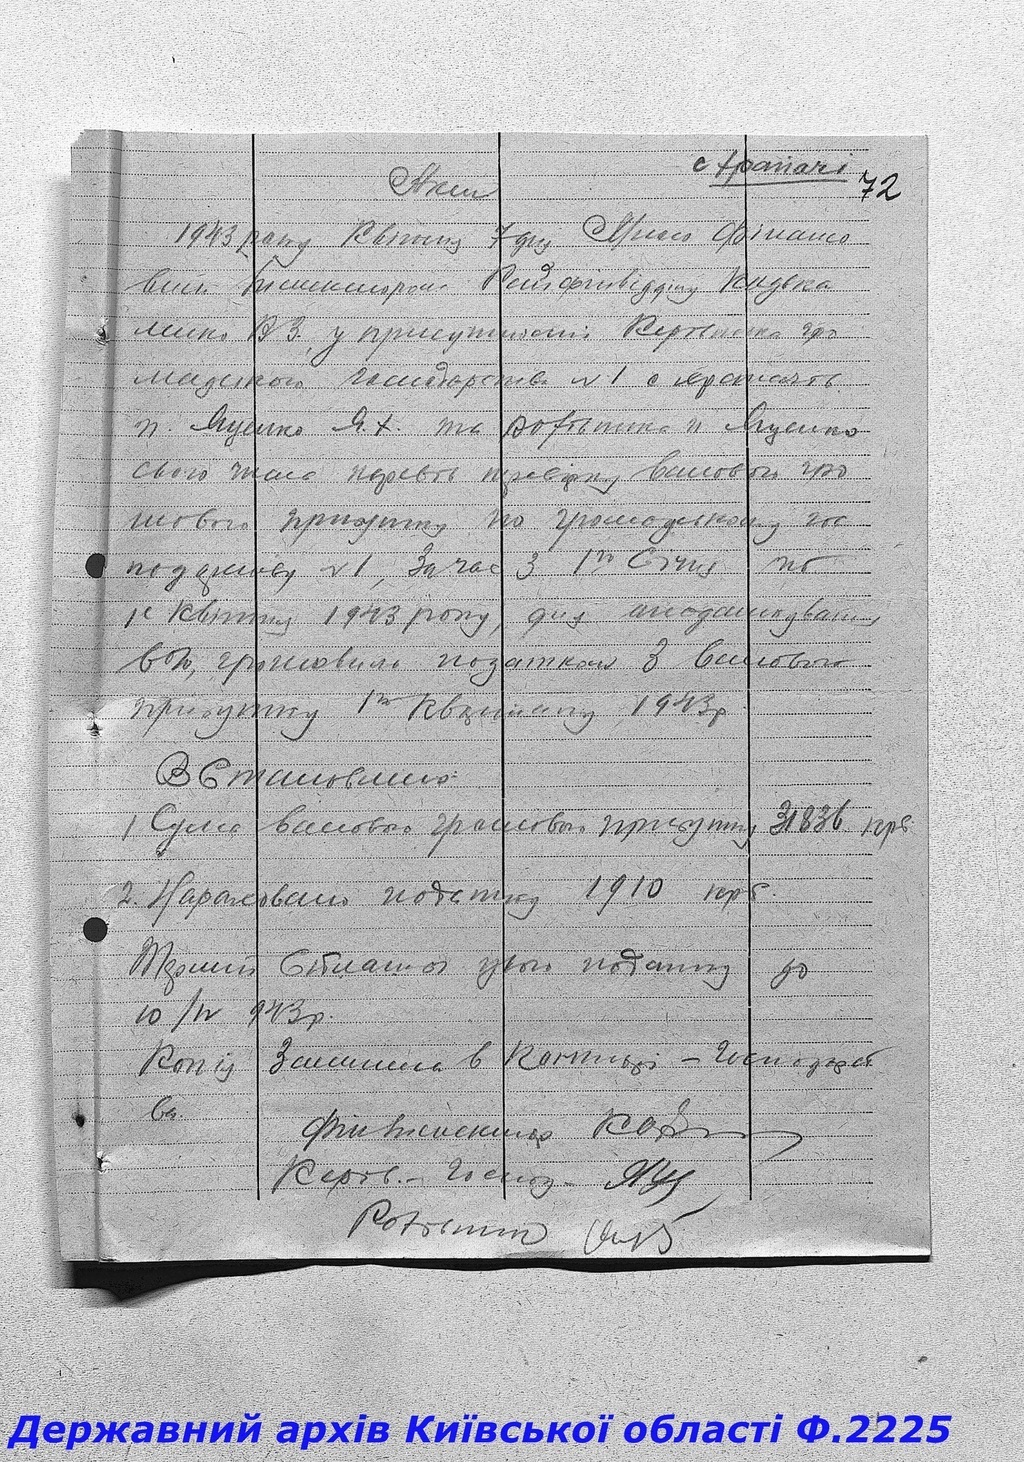 с Трапачі
72
Акт
1943 року Квітня 7 дня Мною Фінансо
вим Інспектором Райфінвідділу
В.З. у присутності Керівника гро
мадського господарства №1 с
п. Яценко Я.Х. та рахівника п Яценко
перевів перевірку валового гро
шового прибутку по громадському гос
подарству №1, За час З 1го Січня по
1е Квітня 1943 року, для
грошовим податком З валового
прибутку 1го Кварталу 1943 р
Встановлено:
1 Сума валового грошового прибутку 31836 крб.
2. Нараховано податку 1910 крб.
Термін Сплати цього податку до
10/IV 943р.
Копія Залишена в Конторі – Господарст
ва.
Фін Інспектор
Керів. – Господ –
Рахівник
Державний архів Київської області Ф.2225